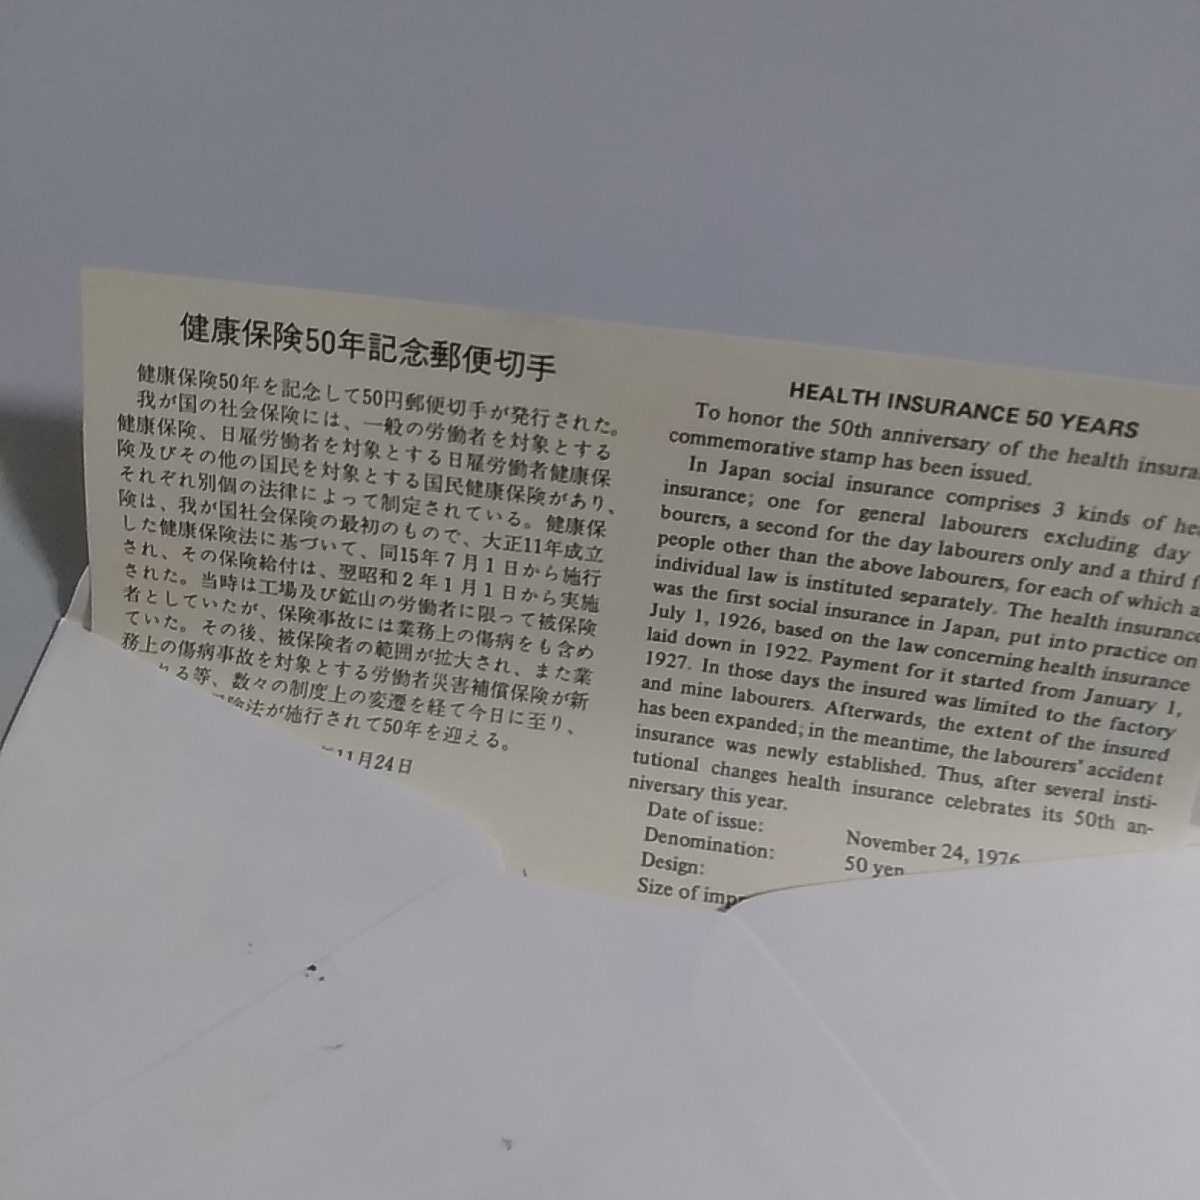 健康保険50年記念郵便切手
健康保険50年を記念して50円郵便切手が発行された。
我が国の社会保険には、一般の労働者を対象とする
健康保険、日雇労働者を対象とする日雇労働者健康保
険及びその他の国民を対象とする国民健康保険があり、
それぞれ別個の法律によって制定されている。健康保
険は、我が国社会保険の最初のもので、大正11年成立
した健康保険法に基づいて、同15年7月1日から施行
され、その保険給付は、翌昭和2年1月1日から実施
された。当時は工場及び鉱山の労働者に限って被保険
者としていたが、保険事故には業務上の傷病をも含め
ていた。その後、被保険者の範囲が拡大され、また業
務上の傷病事故を対象とする労働者災害補償保険が新
れる等、数々の制度上の変遷を経て今日に至り、
険法が施行されて50年を迎える。
11月24日
HEALTH INSURANCE 50 YEARS
To honor the 50th anniversary of the health insura
commemorative stamp has been issued.
In Japan social insurance comprises 3 kinds of hea
insurance; one for general labourers excluding day
bourers, a second for the day labourers only and a third f
people other than the above labourers, for each of which a
individual law is instituted separately. The health insurance
was the first social insurance in Japan, put into practice on
July 1, 1926, based on the law concerning health insurance
laid down in 1922. Payment for it started from January 1,
1927. In those days the insured was limited to the factory
and mine labourers. Afterwards, the extent of the insured
has been expanded; in the meantime, the labourers' accident
insurance was newly established. Thus, after several insti-
tutional changes health insurance celebrates its 50th an-
niversary this year.
Date of issue: November 24, 1976
Denomination: 50 yen
Design:
Size of imp